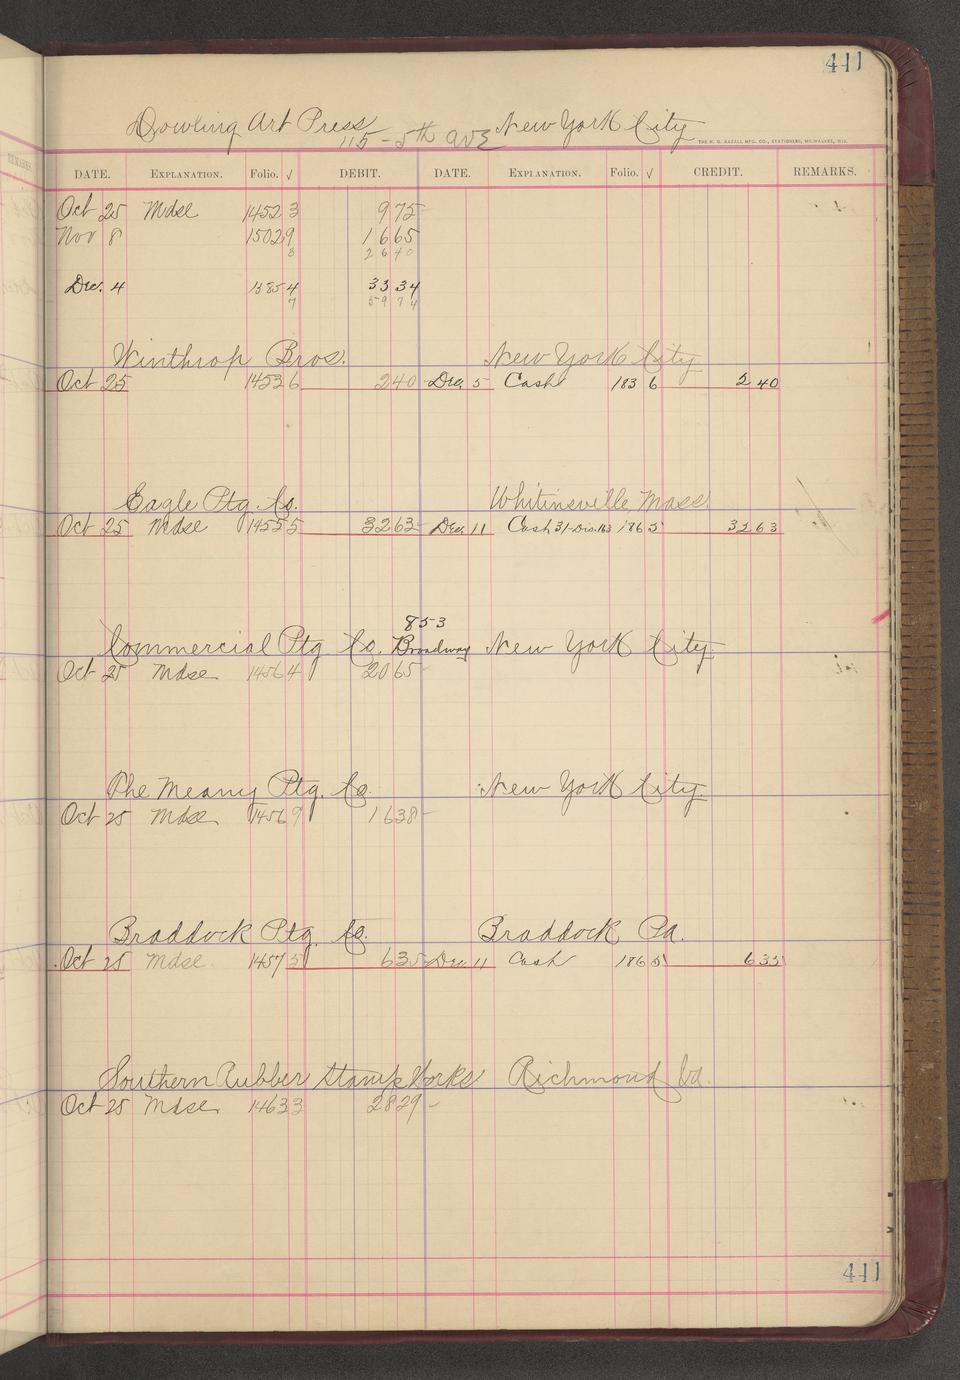 411
Dowling Art Press New York City
115 - 5th AVE
THE H. G. RAZALL MFG. CO., STATIONERS, MILWAUKEE, WIS.
DATE. EXPLANATION. Folio. √ DEBIT. DATE. EXPLANATION. Folio. √ CREDIT. REMARKS.
Oct 25 Mdse 1452 3 9 75
Nov 8 1502 9 16 65
8 26 40
Dec. 4 1585 4 33 34
7 59 74
Winthrop Bros. New York City
Oct 25 1453 6 2 40 Dec 5 Cash 183 6 2 40
Eagle Ptg. Co. Whitinsville Mass.
Oct 25 Mdse 1455 5 32 63 Dec 11 Cash 186 5 32 63
853
Commercial Ptg Co. Broadway New York City.
Oct 25 Mdse 1456 4 20 65
The Meany Ptg. Co. New York City.
Oct 25 Mdse 1456 9 16 38
Braddock Ptg. Co. Braddock Pa.
Oct 25 Mdse 1457 5 6 35 Dec 11 Cash 186 5 6 35
Southern Rubber Stamp Works Richmond Va.
Oct 25 Mdse 1463 3 28 29
411